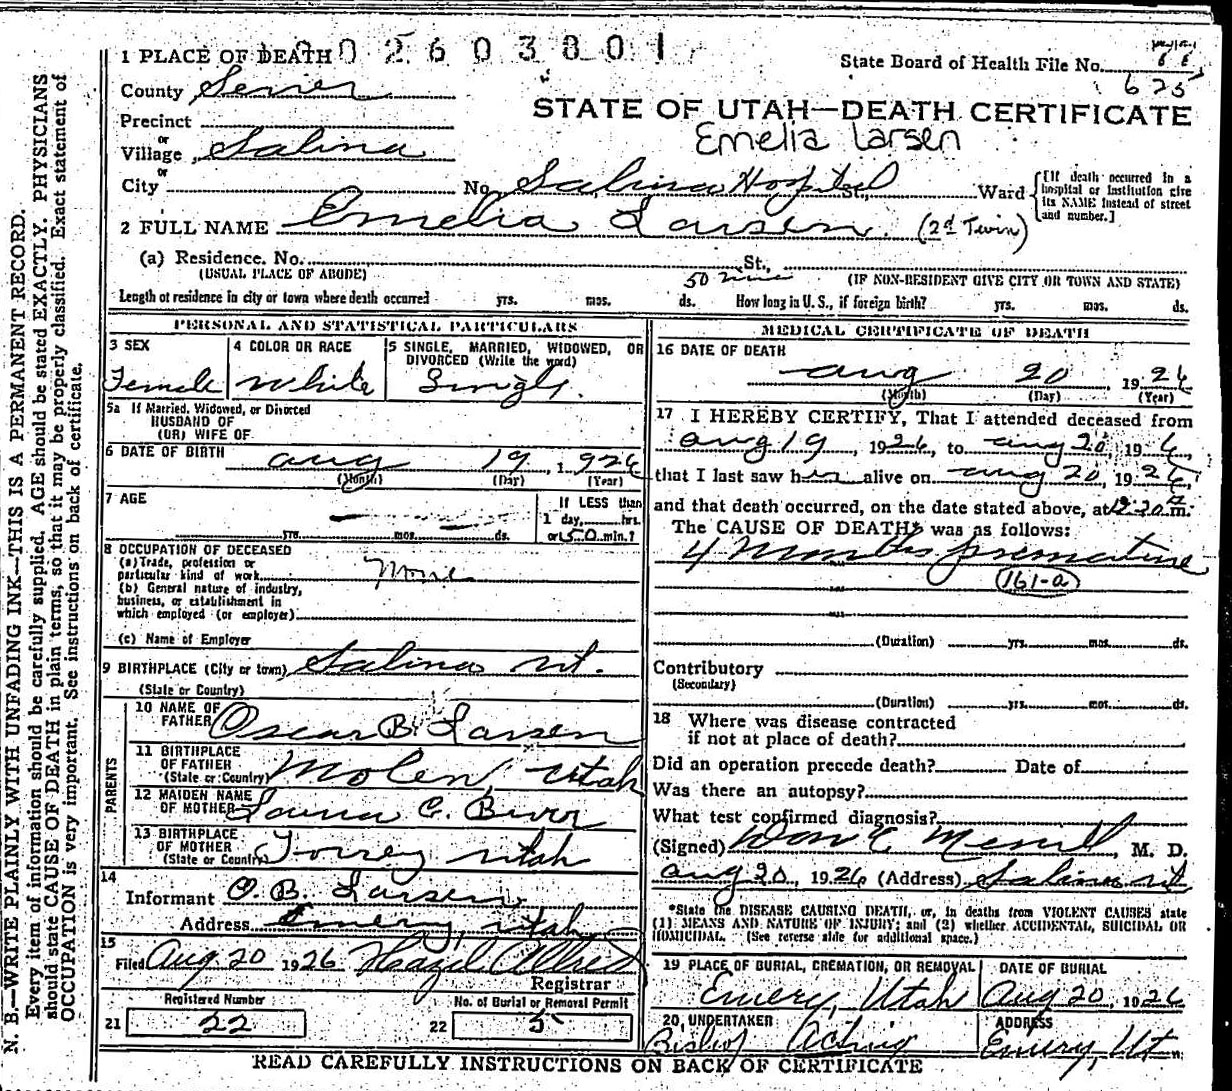 N. B.—WRITE PLAINLY WITH UNFADING INK—THIS IS A PERMANENT RECORD.
Every item of information should be carefully supplied. AGE should be stated EXACTLY. PHYSICIANS
should state CAUSE OF DEATH in plain terms, so that it may be properly classified. Exact statement of
OCCUPATION is very important. See instructions on back of certificate.
1 PLACE OF DEATH 02603801
State Board of Health File No. 
625
County Sevier
STATE OF UTAH—DEATH CERTIFICATE
Emelia Larsen
Precinct
or
Village Salina
or
City No. Salina Hospital St., Ward
[If death occurred in a
hospital or institution give
its NAME instead of street
and number.]
2 FULL NAME Emelia Larsen. (2d Twin)
(a) Residence. No. St.,
(USUAL PLACE OF ABODE) (IF NON-RESIDENT GIVE CITY OR TOWN AND STATE)
50 min
Length of residence in city or town where death occurred yrs. mos. ds. How long in U.S., if foreign birth? yrs. mos. ds.
PERSONAL AND STATISTICAL PARTICULARS
3 SEX
Female
4 COLOR OR RACE
White
5 SINGLE, MARRIED, WIDOWED, OR
DIVORCED (Write the word)
Single
5a If Married, Widowed, or Divorced
HUSBAND OF
(OR) WIFE OF
6 DATE OF BIRTH Aug 19, 1926
(Month) (Day) (Year)
7 AGE
yrs. mos. ds.
If LESS than
1 day, hrs.
or 50 min.?
8 OCCUPATION OF DECEASED
(a) Trade, profession or
particular kind of work None
(b) General nature of industry,
business, or establishment in
which employed (or employer)
(c) Name of Employer
9 BIRTHPLACE (City or town) Salina Ut.
(State or Country)
PARENTS
10 NAME OF
FATHER Oscar B. Larsen
11 BIRTHPLACE
OF FATHER
(State or Country) Molen, Utah
12 MAIDEN NAME
OF MOTHER C.
13 BIRTHPLACE
OF MOTHER
(State or Country) Torrey Utah
14
Informant O. B. Larsen
Address Emery, Utah
15
Filed Aug 20 1926 Hazel Allred
Registrar
Registered Number
21 22
No. of Burial or Removal Permit
22 5
MEDICAL CERTIFICATE OF DEATH
16 DATE OF DEATH
Aug 20, 1926
(Month) (Day) (Year)
17 I HEREBY CERTIFY, That I attended deceased from
Aug 19, 1926, to Aug 20, 1926,
that I last saw her alive on Aug 20, 1926,
and that death occurred, on the date stated above, at 12:20 a m.
The CAUSE OF DEATH* was as follows:
4 Months premature
161-a
(Duration) yrs. mos. ds.
Contributory
(Secondary)
(Duration) yrs. mos. ds.
18 Where was disease contracted
if not at place of death?
Did an operation precede death? Date of
Was there an autopsy?
What test confirmed diagnosis?
(Signed) Don C. Merrill, M. D.
Aug 20, 1926 (Address) Salina Ut
*State the DISEASE CAUSING DEATH, or, in deaths from VIOLENT CAUSES state
(1) MEANS AND NATURE OF INJURY; and (2) whether ACCIDENTAL, SUICIDAL OR
HOMICIDAL. (See reverse side for additional space.)
19 PLACE OF BURIAL, CREMATION, OR REMOVAL
Emery, Utah
DATE OF BURIAL
Aug 20, 1926
20, UNDERTAKER
Bishop Acting
ADDRESS
Emery, Ut
READ CAREFULLY INSTRUCTIONS ON BACK OF CERTIFICATE